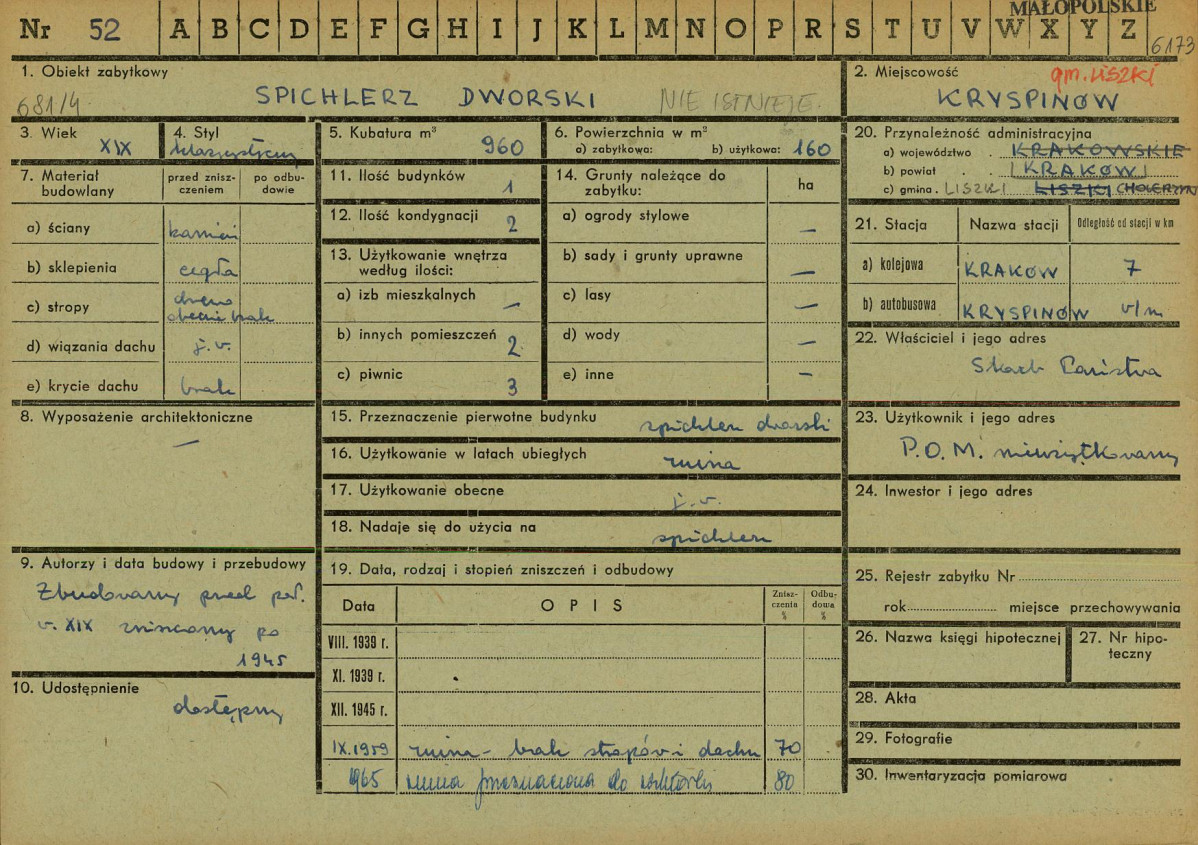 MAŁOPOLSKIE
Nr 52 A B C D E F G H I J K L M N O P R S T U V W X Y Z
6173
1. Obiekt zabytkowy
681/4
SPICHLERZ DWORSKI NIE ISTNIEJE.
2. Miejscowość gm. LISZKI
KRYSPINÓW
3. Wiek
XIX
4. Styl
klasycystyczny
5. Kubatura m³
960
6. Powierzchnia w m²
a) zabytkowa: b) użytkowa: 160
7. Materiał budowlany
przed zniszczeniem
po odbudowie
a) ściany kamień
b) sklepienia cegła
c) stropy drewno
obecnie brak
d) wiązania dachu j.w.
e) krycie dachu brak
8. Wyposażenie architektoniczne
—
9. Autorzy i data budowy i przebudowy
Zbudowany przed poł.
w. XIX zniszczony po
1945
10. Udostępnienie
dostępny
11. Ilość budynków 1
12. Ilość kondygnacji 2
13. Użytkowanie wnętrza
według ilości:
a) izb mieszkalnych —
b) innych pomieszczeń 2
c) piwnic 3
14. Grunty należące do
zabytku: ha
a) ogrody stylowe —
b) sady i grunty uprawne —
c) lasy —
d) wody —
e) inne —
15. Przeznaczenie pierwotne budynku spichlerz dworski
16. Użytkowanie w latach ubiegłych ruina
17. Użytkowanie obecne j.w.
18. Nadaje się do użycia na spichlerz
19. Data, rodzaj i stopień zniszczeń i odbudowy
Data OPIS Zniszczenia % Odbudowa %
VIII. 1939 r.
XI. 1939 r.
XII. 1945 r.
IX.1959 ruina - brak stropów i dachu 70
1965 ruina przeznaczona do rozbiórki 80
20. Przynależność administracyjna
a) województwo . KRAKOWSKIE
b) powiat . . KRAKÓW
c) gmina . LISZKI LISZKI CHOLERZYN
21. Stacja Nazwa stacji Odległość od stacji w km
a) kolejowa KRAKÓW 7
b) autobusowa KRYSPINÓW v/m
22. Właściciel i jego adres
Skarb Państwa
23. Użytkownik i jego adres
P.O.M. nieużytkowany
24. Inwestor i jego adres
25. Rejestr zabytku Nr
rok miejsce przechowywania
26. Nazwa księgi hipotecznej
27. Nr hipoteczny
28. Akta
29. Fotografie
30. Inwentaryzacja pomiarowa